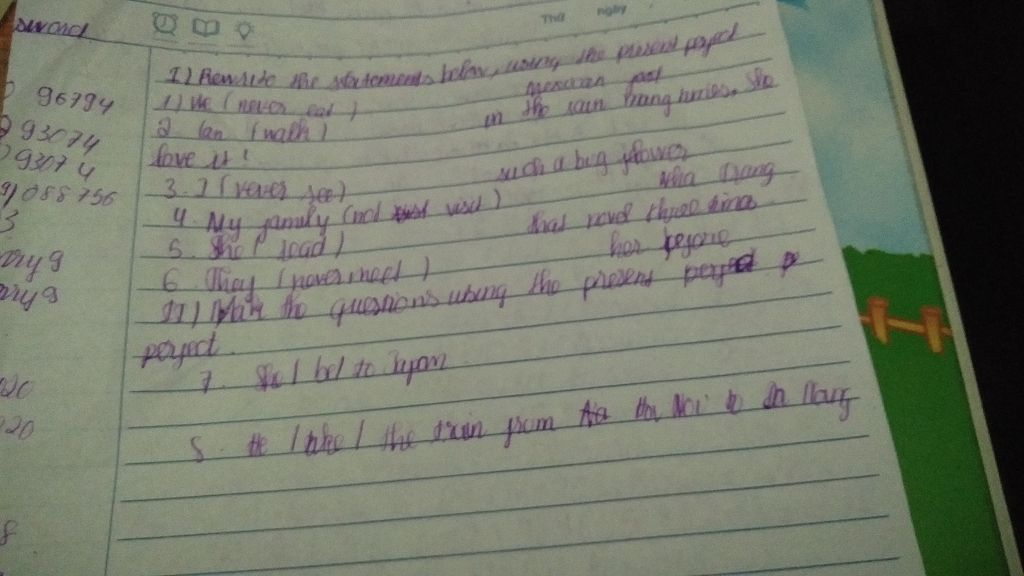 Thứ ngày
96794
93074
93074
088756
3
20
20
8
I) Rewrite the statements below, using the present perfect
1) We (never eat) mexican
2 Lan (walk) in the rain many times. She
love it!
3. I (never see) such a big flower
4 My family (not visit) Nha Trang
5. She (read) that novel three times
6 They (never meet) her before
II) Make the questions using the present
perfect.
7. She / be / to Japan
8. He / take / the train from Ha Noi to Da Nang